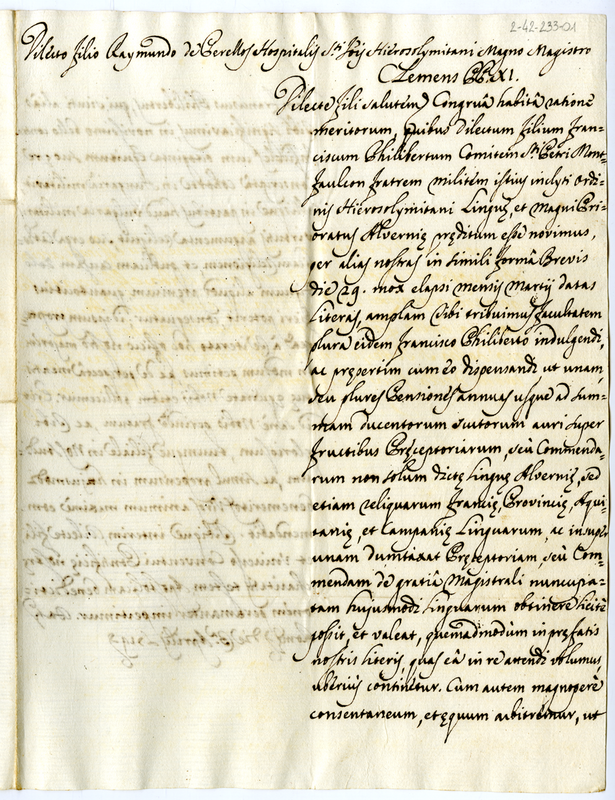 2-42-233-01
Dilecto filio Raymundo de Perellos Hospitalis Sti. Jois Hierosolymitani Magno Magistro
Clemens PP. XI.
Dilecte fili salutem. Congruâ habitâ ratione
meritorum, quibus Dilectum filium Fran=
ciscum Philibertum Comitem Sti. Petri Mont=
faulcon fratrem militem istius inclyti Ordi=
nis Hierosolymitani Linguę, et magni Pri=
oratus Alvernię pręditum esse novimus,
per alias nostras in simili formâ Brevis
die 29. mox elapsi mensis Martij datas
literas, amplam tibi tribuimus facultatem
plura eidem Francisco Philiberto indulgendi,
ac pręsertim cum eo dispensandi ut unam,
seu plures Pensiones annuas usque ad sum=
mam ducentorum scutorum auri super
fructibus Pręceptoriarum, seù Commenda=
rum non solùm dictę Linguę Alvernię, sed
etiam reliquarum Francię, Provincię, Aqui=
tanię, et Campanię Linguarum, ac insuper
unam dumtaxat Pręceptoriam, seù Com=
mendam de gratiâ Magistrali nuncupa=
tam hujusmodi Linguarum obtinere licitè
possit, et valeat, quemadmodùm in pręfatis
nostris literis, quas eâ in re attendi volumus,
uberiùs continetur. Cum autem magnopere
consentaneum, et ęquum arbitremur, ut